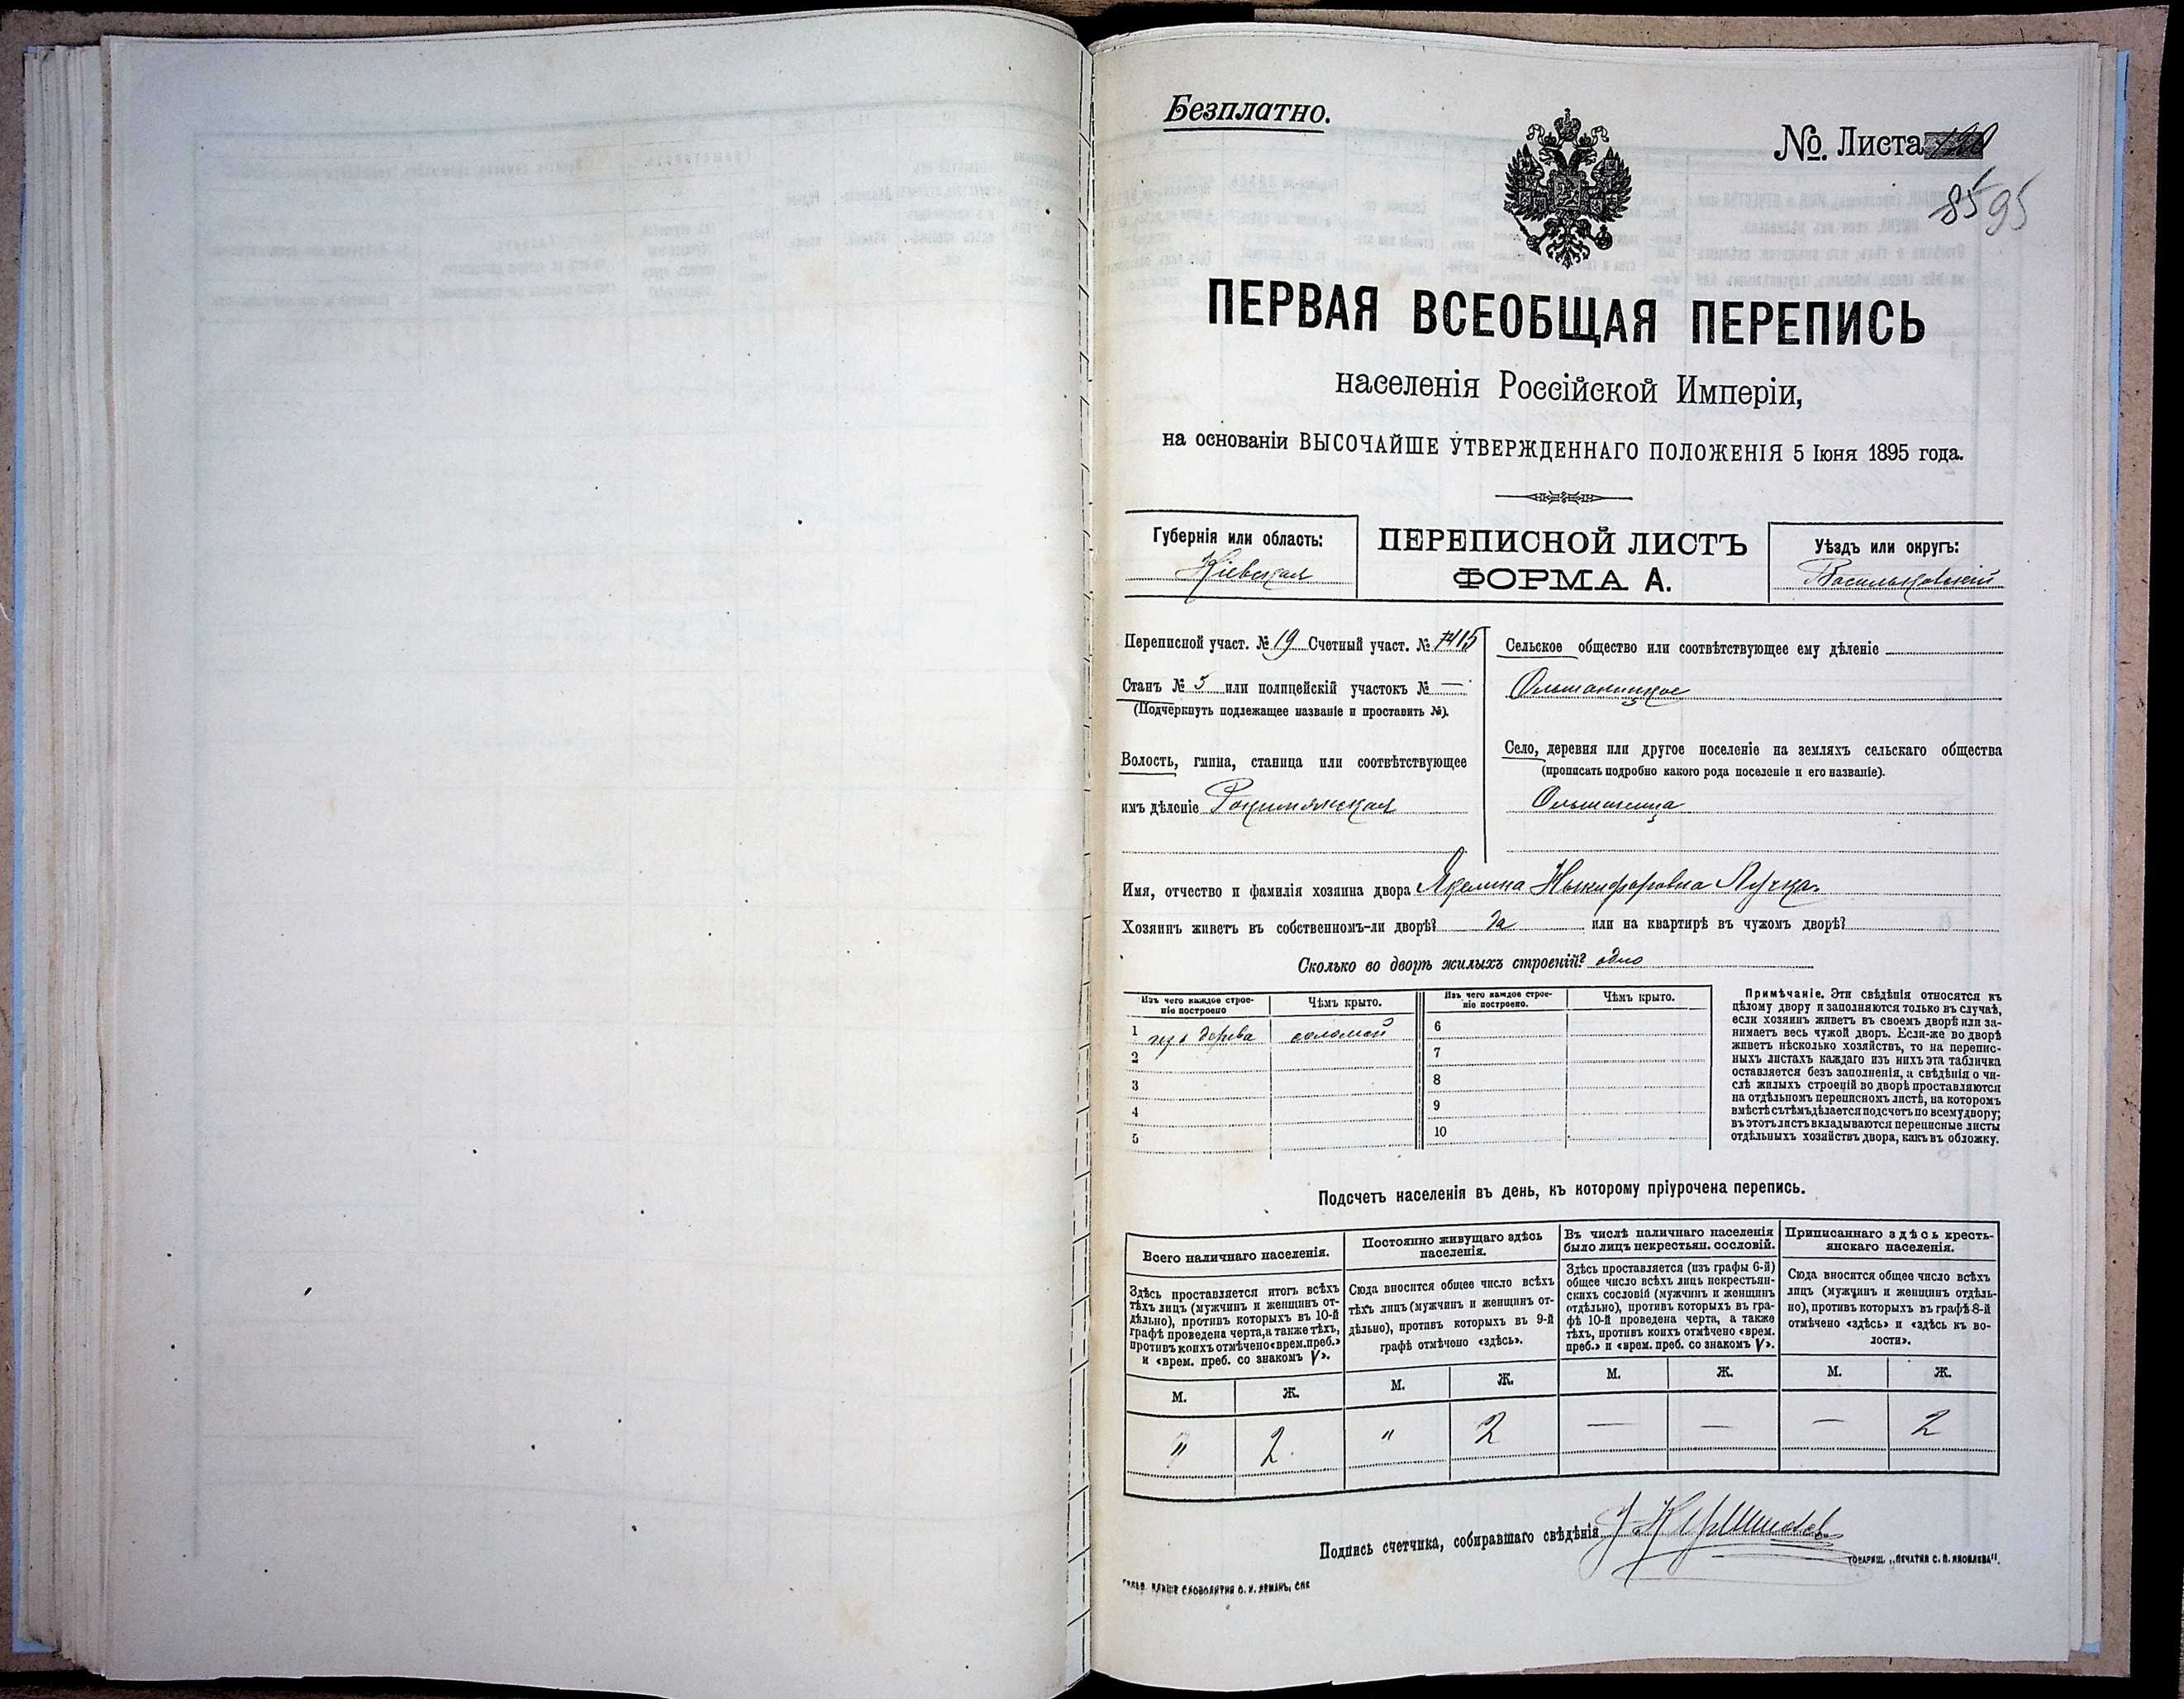 Безплатно.
№. Листа
85 95
ПЕРВАЯ ВСЕОБЩАЯ ПЕРЕПИСЬ
населенія Россійской Имперіи,
на основаніи ВЫСОЧАЙШЕ УТВЕРЖДЕННАГО ПОЛОЖЕНІЯ 5 Іюня 1895 года.
Губернія или область:
Кіевская
ПЕРЕПИСНОЙ ЛИСТЪ
ФОРМА А.
Уѣздъ или округъ:
Васильковскій
Переписной участ. № 19 Счетный участ. №
Станъ № 5 или полицейскій участокъ № —
(Подчеркнуть подлежащее названіе и проставить №).
Волость, гмина, станица или соотвѣтствующее
имъ дѣленіе Рокитянская
Сельское общество или соотвѣтствующее ему дѣленіе
Ольшаницкое
Село, деревня или другое поселеніе на земляхъ сельскаго общества
(прописать подробно какого рода поселеніе и его названіе).
Ольшаница
Имя, отчество и фамилія хозяина двора Никифоровна
Хозяинъ живетъ въ собственномъ-ли дворѣ? да или на квартирѣ въ чужомъ дворѣ?
Сколько во дворѣ жилыхъ строеній? одно
Изъ чего каждое строе-
ніе построено
Чѣмъ крыто.
Изъ чего каждое строе-
ніе построено.
Чѣмъ крыто.
1 изъ дерева соломой 6
2 7
3 8
4 9
5 10
Примѣчаніе. Эти свѣдѣнія относятся къ
цѣлому двору и заполняются только въ случаѣ,
если хозяинъ живетъ въ своемъ дворѣ или за-
нимаетъ весь чужой дворъ. Если-же во дворѣ
живетъ нѣсколько хозяйствъ, то на перепис-
ныхъ листахъ каждаго изъ нихъ эта табличка
оставляется безъ заполненія, а свѣдѣнія о чи-
слѣ жилыхъ строеній во дворѣ проставляются
на отдѣльномъ переписномъ листѣ, на которомъ
вмѣстѣ съ тѣмъ дѣлается подсчетъ по всему двору;
въ этотъ листъ вкладываются переписные листы
отдѣльныхъ хозяйствъ двора, какъ въ обложку.
Подсчетъ населенія въ день, къ которому пріурочена перепись.
Всего наличнаго населенія.
Здѣсь проставляется итогъ всѣхъ
тѣхъ лицъ (мужчинъ и женщинъ от-
дѣльно), противъ которыхъ въ 10-й
графѣ проведена черта, а также тѣхъ,
противъ коихъ отмѣчено «врем. преб.»
и «врем. преб. со знакомъ V».
Постоянно живущаго здѣсь
населенія.
Сюда вносится общее число всѣхъ
тѣхъ лицъ (мужчинъ и женщинъ от-
дѣльно), противъ которыхъ въ 9-й
графѣ отмѣчено «здѣсь».
Въ числѣ наличнаго населенія
было лицъ некрестьян. сословій.
Здѣсь проставляется (изъ графы 6-й)
общее число всѣхъ лицъ некрестьян-
скихъ сословій (мужчинъ и женщинъ
отдѣльно), противъ которыхъ въ гра-
фѣ 10-й проведена черта, а также
тѣхъ, противъ коихъ отмѣчено «врем.
преб.» и «врем. преб. со знакомъ V».
Приписаннаго здѣсь кресть-
янскаго населенія.
Сюда вносится общее число всѣхъ
лицъ (мужчинъ и женщинъ отдѣль-
но), противъ которыхъ въ графѣ 8-й
отмѣчено «здѣсь» и «здѣсь къ во-
лости».
М. Ж. М. Ж. М. Ж. М. Ж.
" 2 " 2 — — — 2
Подпись счетчика, собиравшаго свѣдѣнія
ТОВАРИЩ. „ПЕЧАТНЯ С. П. ЯКОВЛЕВА".